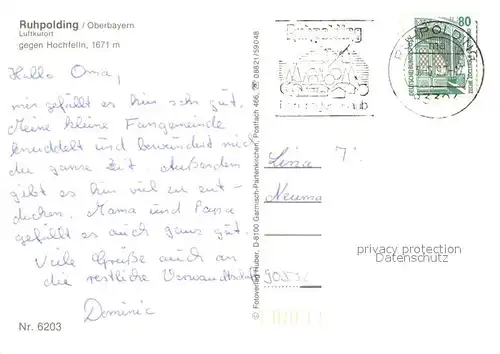 Ruhpolding / Oberbayern
Luftkurort
gegen Hochfelln, 1671 m
Hallo Oma,
mir gefällt es hier sehr gut.
Meine kleine Fangemeinde
knuddelt und bewundert mich
die ganze Zeit. Außerdem
gibt es hier viel zu ent-
decken. Mama und Papa
gefällt es auch ganz gut.
Viele Grüße auch an
die restliche Verwandtschaft
Dominic
Nr. 6203
© Fotoverlag Huber, D-8100 Garmisch-Partenkirchen, Postfach 466, ☎ 08821/59048
Ruhpolding
80
RUHPOLDING
Lina
Neuma
privacy protection
Datenschutz